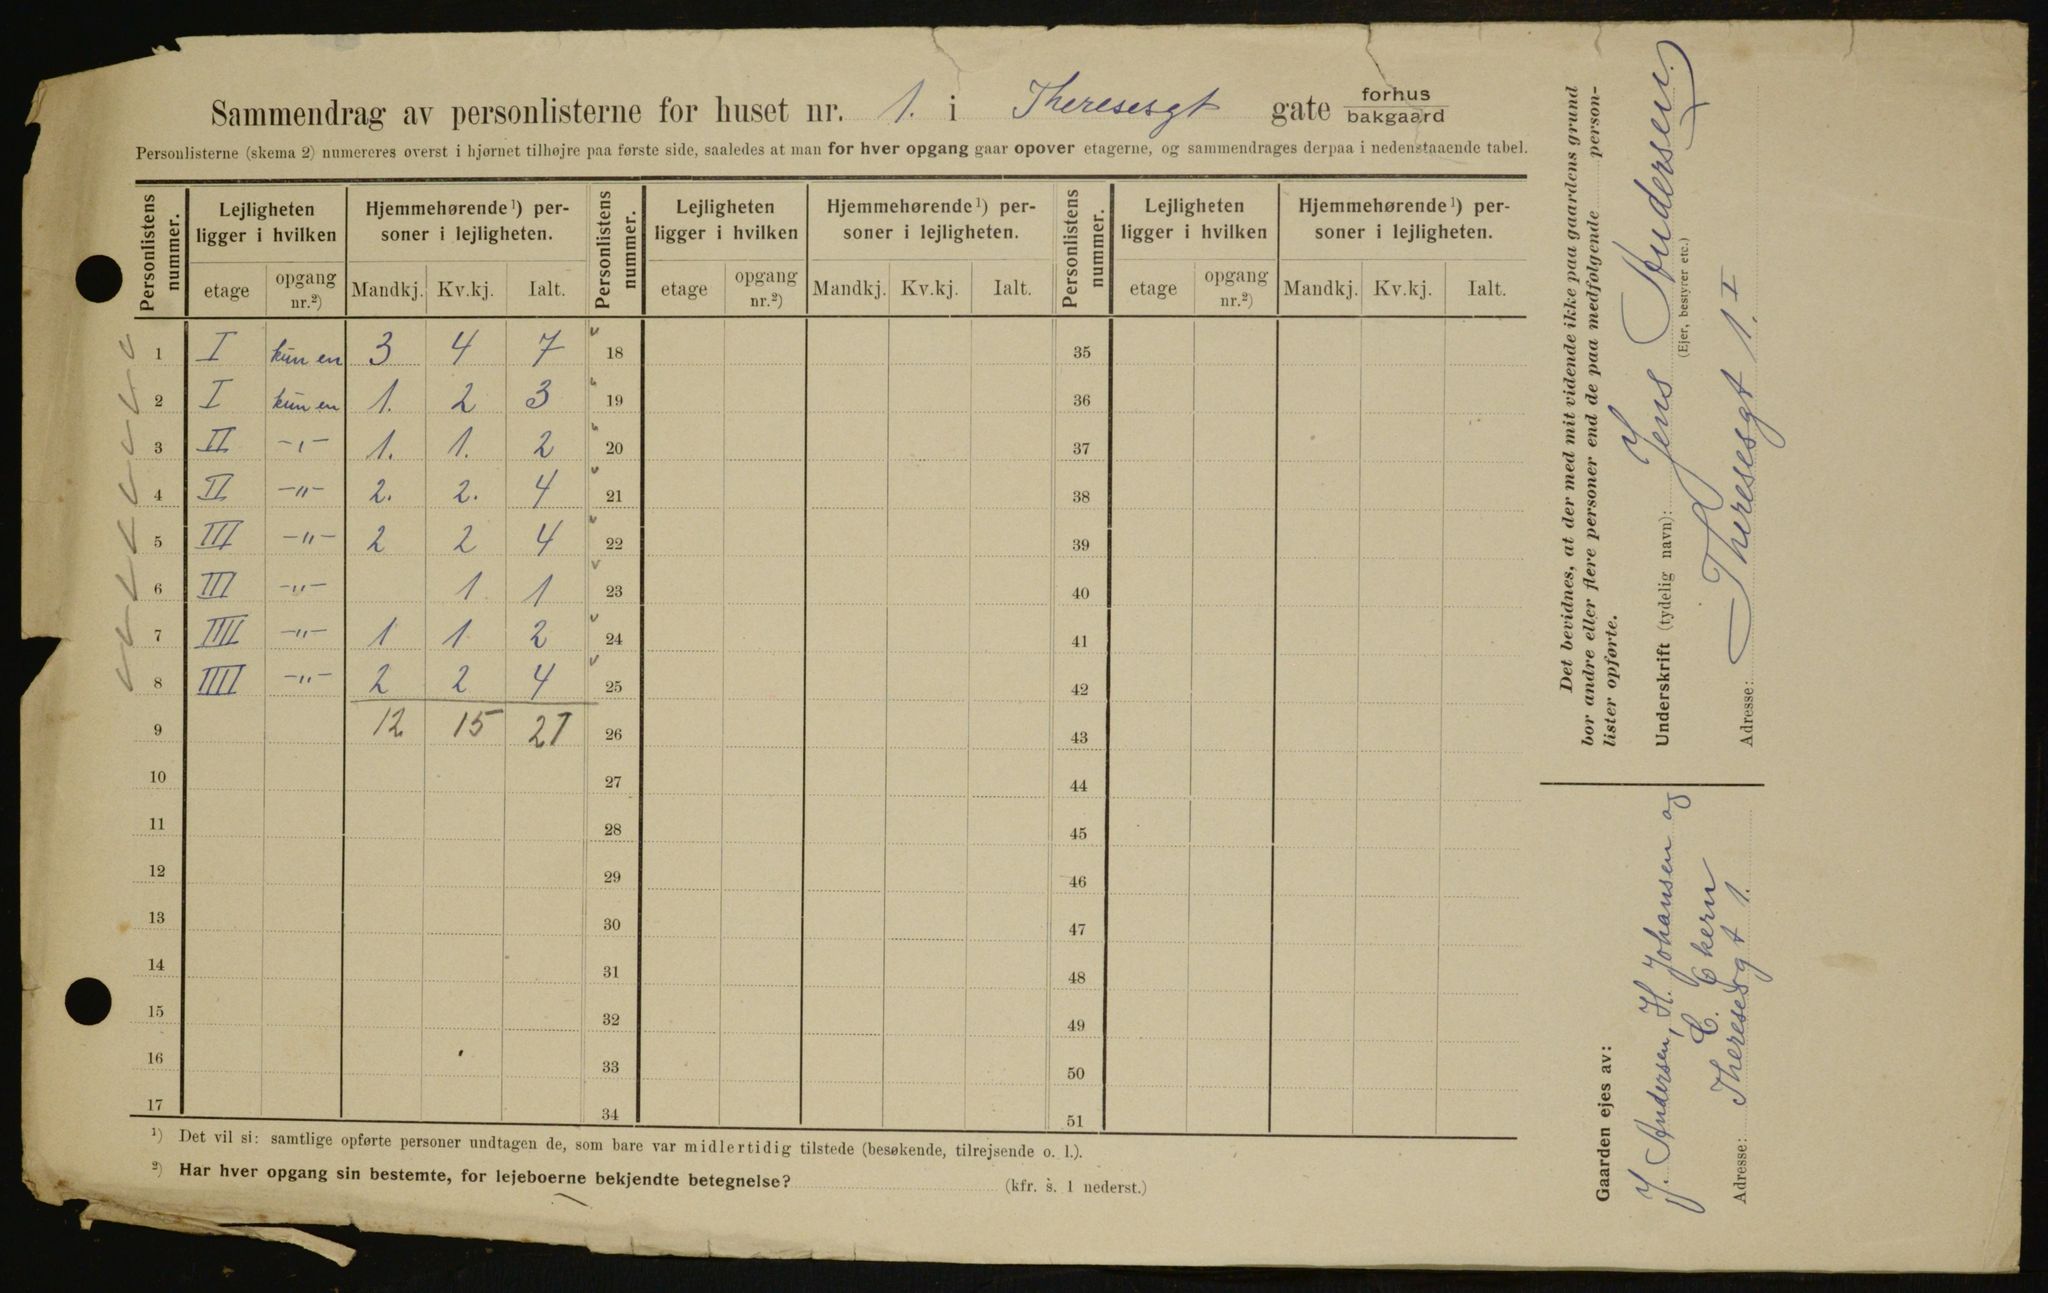 Sammendrag av personlisterne for huset nr. 1. i Theresesgt gate forhus
bakgaard
Personlisterne (skema 2) numereres øverst i hjørnet tilhøjre paa første side, saaledes at man for hver opgang gaar opover etagerne, og sammendrages derpaa i nedenstaaende tabel.
Personlistens nummer. Lejligheten ligger i hvilken Hjemmehørende ¹) personer i lejligheten. Personlistens nummer. Lejligheten ligger i hvilken Hjemmehørende ¹) personer i lejligheten. Personlistens nummer. Lejligheten ligger i hvilken Hjemmehørende ¹) personer i lejligheten.
etage opgang nr.²) Mandkj. Kv.kj. Ialt. etage opgang nr.²) Mandkj. Kv.kj. Ialt. etage opgang nr.²) Mandkj. Kv.kj. Ialt.
1 I kun en 3 4 7 18 35
2 I kun en 1. 2 3 19 36
3 II -"- 1. 1. 2 20 37
4 II -"- 2. 2. 4 21 38
5 III -"- 2 2 4 22 39
6 III -"- 1 1 23 40
7 IIII -"- 1 1 2 24 41
8 IIII -"- 2 2 4 25 42
9 12 15 27 26 43
10 27 44
11 28 45
12 29 46
13 30 47
14 31 48
15 32 49
16 33 50
17 34 51
¹) Det vil si: samtlige opførte personer undtagen de, som bare var midlertidig tilstede (besøkende, tilrejsende o. l.).
²) Har hver opgang sin bestemte, for lejeboerne bekjendte betegnelse? (kfr. s. 1 nederst.)
Det bevidnes, at der med mit vidende ikke paa gaardens grund
bor andre eller flere personer end de paa medfølgende person-
lister opførte.
Underskrift (tydelig navn): Jens Andersen.
(Ejer, bestyrer etc.)
Adresse: Theresesgt 1. I
Gaarden ejes av:
J. Andersen, H. Johansen og
C. Ekern
Adresse: Theresesgt 1.